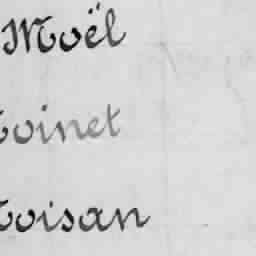 Moël
Moinet
Moisan